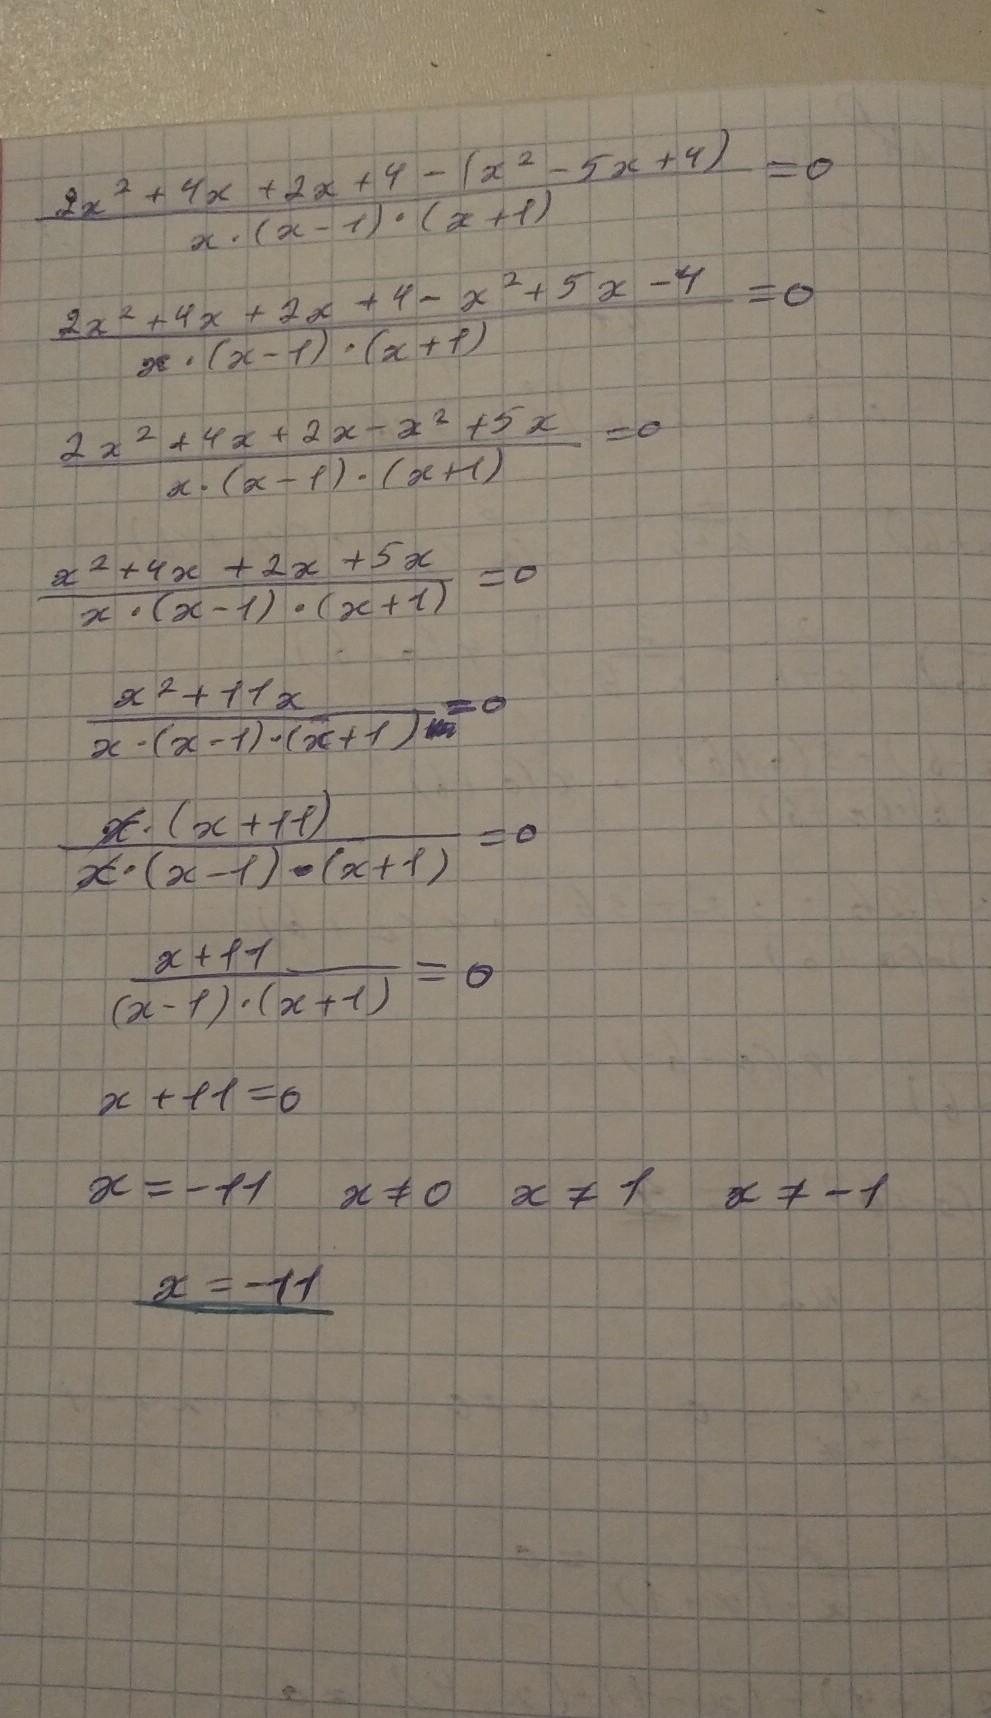 2x² + 4x + 2x + 4 - (x² - 5x + 4) = 0
x · (x - 1) · (x + 1)
2x² + 4x + 2x + 4 - x² + 5x - 4 = 0
x · (x - 1) · (x + 1)
2x² + 4x + 2x - x² + 5x = 0
x · (x - 1) · (x + 1)
x² + 4x + 2x + 5x = 0
x · (x - 1) · (x + 1)
x² + 11x = 0
x · (x - 1) · (x + 1)
x · (x + 11) = 0
x · (x - 1) · (x + 1)
x + 11 = 0
(x - 1) · (x + 1)
x + 11 = 0
x = -11 x ≠ 0 x ≠ 1 x ≠ -1
x = -11